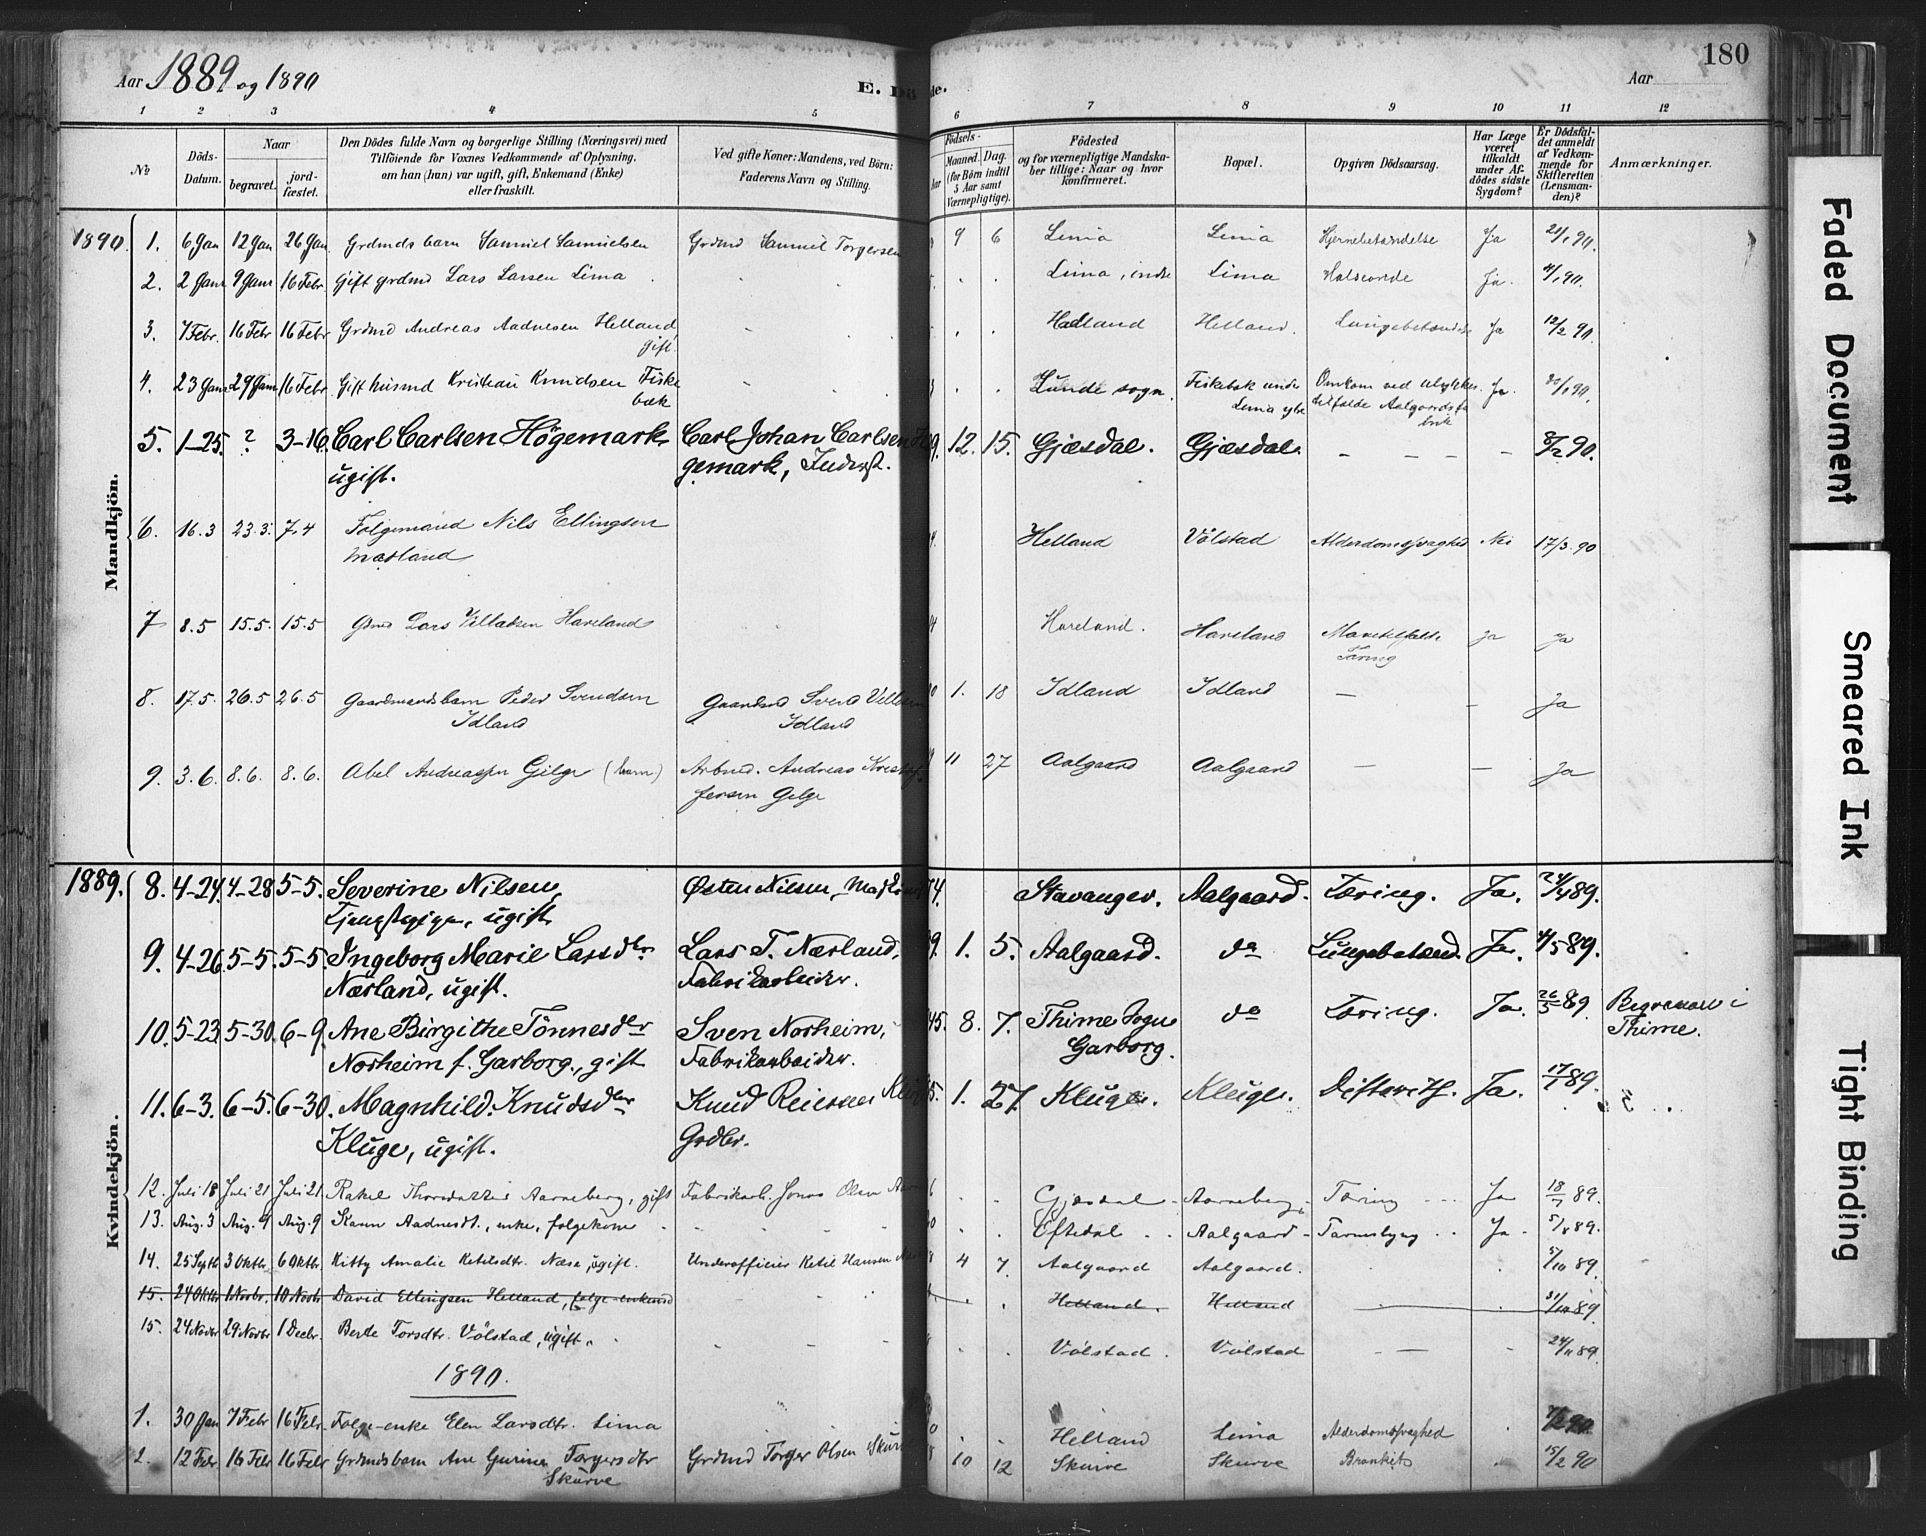 180
Aar 1889 og 1890
E. Dö de.
Aar
1 2 3 4 5 6 7 8 9 10 11 12
№
Döds-Datum.
Naar
begravet.
jord-fæstet.
Den Dödes fulde Navn og borgerlige Stilling (Næringsvei) med
Tilföiende for Voxnes Vedkommende af Oplysning,
om han (hun) var ugift, gift, Enkemand (Enke)
eller fraskilt.
Ved gifte Koner: Mandens, ved Börn:
Faderens Navn og Stilling.
Födsels-
Aar Maaned. Dag.
(for Börn indtil
5 Aar samt
Værnepligtige).
Födested
og for værnepligtige Mandska-
ber tillige: Naar og hvor
konfirmeret.
Bopæl.
Opgiven Dödsaarsag.
Har Læge
været
tilkaldt
under Af-
dödes sidste
Sygdom?
Er Dödsfal-
det anmeldt
af Vedkom-
mende for
Skifteretten
(Lensman-
den)?
Anmærkninger.
Mandkjön.
1890. 1. 6 Jan 12 Jan 26 Jan Grdmds barn Samuel Samuelsen Grdmd Samuel Torgersen 9 6 Lima Lima Hjernebetændelse Ja 21/1 90.
2. 2 Jan 9 Jan 16 Febr Gift grdmd Lars Larsen Lima Lima, indre Lima Ja. 4/1 90.
3. 7 Febr. 16 Febr 16 Febr Grdmd Andreas Aadnesen Helland Helland Helland. Lungebetændelse Ja 12/2 90.
gift.
4. 23 Jan 29 Jan 16 Febr. Gift husmd Kristian Knudsen Fiske Lunde sogn. Fiskebæk under Omkom ved ulykkes Ja.
bæk Lima tilfælde Aalgaards fa
brik
5. 1-25. ? 3-16. Carl Carlsen Högemark Carl Johan Carlsen Hö 9. 12. 15. Gjæsdal. Gjæsdal. — — — — 8/2 90.
ugift. gemark, Inderst.
6. 16.3 23.3. 7.4 Folgemand Nils Ellingsen Helland Völstad Alderdomssvaghed Nei 17/3 90
Mæland
7 8.5 15.5. 15.5 Gmd Lars Haveland Haveland. Haveland ja Ja
Tæring
8. 17.5. 26.5 26.5 Gaardmandsbarn Peder Svendsen Gaardmd Svend 1. 18 Idland Idland — — Ja
Idland Idland
9. 3.6. 8.6. 8.6. Abel Andreassen Gjilge (barn) Arbmd. Andreas Kristof 11 27 Aalgaard Aalgaard — — Ja
fersen Gilge
Kvindekjön.
1889. 8. 4-24. 4-28. 5-5. Severine Nilsen, Østen Nilsen, 74. Stavanger. Aalgaard. Tæring. Ja. 24/4 89.
Tjenestepige, ugift.
9. 4-26. 5-5. 5-5. Ingeborg Marie Larsdtr Lars T. Nærland, 9. 1. 5. Aalgaard. do Lungebetænd. Ja. 4/5 89.
Nærland, ugift. Fabrikarbeider.
10. 5-23. 5-30. 6-9. Ane Birgithe Tönnesdtr Sven Norheim, 45. 8. 7. Thime Sogn do Tæring. Ja. 26/5 89. Begravet i
Norheim f. Garborg., gift Fabrikarbeider. Garborg. Thime.
11. 6-3. 6-5. 6-30. Magnhild Knudsdtr Knud Reiersen Kluge 5. 1. 27. Kluge. Kluge. Difterith. Ja. 17/7 89.
Kluge, ugift. Grdbr.
12. Juli 18 Juli 21 Juli 21 Rakel Aarneberg, gift Fabrikarb. Jonas Olsen 6 Gjæsdal Aarneberg Tæring Ja 18/7 89.
13. Aug. 3 Aug. 9 Aug. 9 Karen Aadnesdt., enke, folgekone Oftedal Aalgaard Ja 5/8 89.
14. 25 Septb 3 Oktbr. 6 Oktbr. Kitty Amalie Ketilsdtr. Næse, ugift. Underofficier Ketil Hansen 4 7. Aalgaard Aalgaard. 5/10 89.
15. 24 Oktbr 1 Novbr. 10 Novbr David Ellingsen Helland, folge-enkemd Helland. Helland 31/10 89.
15. 24 Novbr 29 Novbr 1 Decbr. Berte Torsdtr. Völstad, ugift. Völstad. Völstad 24/11 89.
1890.
1. 30 Jan 7 Febr 16 Febr. Folge-enke Elen Larsdtr. Lima Helland Lima Alderdomssvaghed 7/2 90.
2. 12 Febr 16 Febr 16 Febr Grdmdsbarn Ane Gurine Torgersdtr Grdmd Torger Olsen Skurve 10 12 Skurve Skurve Bronkit 15/2 90
Skurve
Faded Document
Smeared Ink
Tight Binding